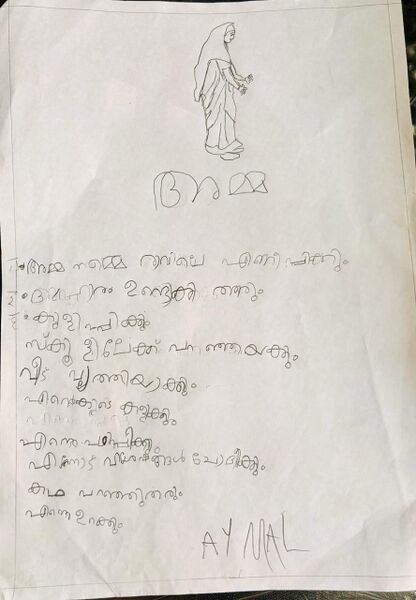 അമ്മ
അമ്മ നമ്മെ രാവിലെ എണീപ്പിക്കും
ഉണ്ടാക്കി തരും
കുളിപ്പിക്കും
സ്കൂളിലേക്ക് പറഞ്ഞയക്കും
വീട് വൃത്തിയാക്കും
കളിക്കും
എന്നെ പഠിപ്പിക്കും
എന്നോട് വിശേഷങ്ങൾ ചോദിക്കും
കഥ പറഞ്ഞുതരും
എന്നെ ഉറക്കും
AYMAL